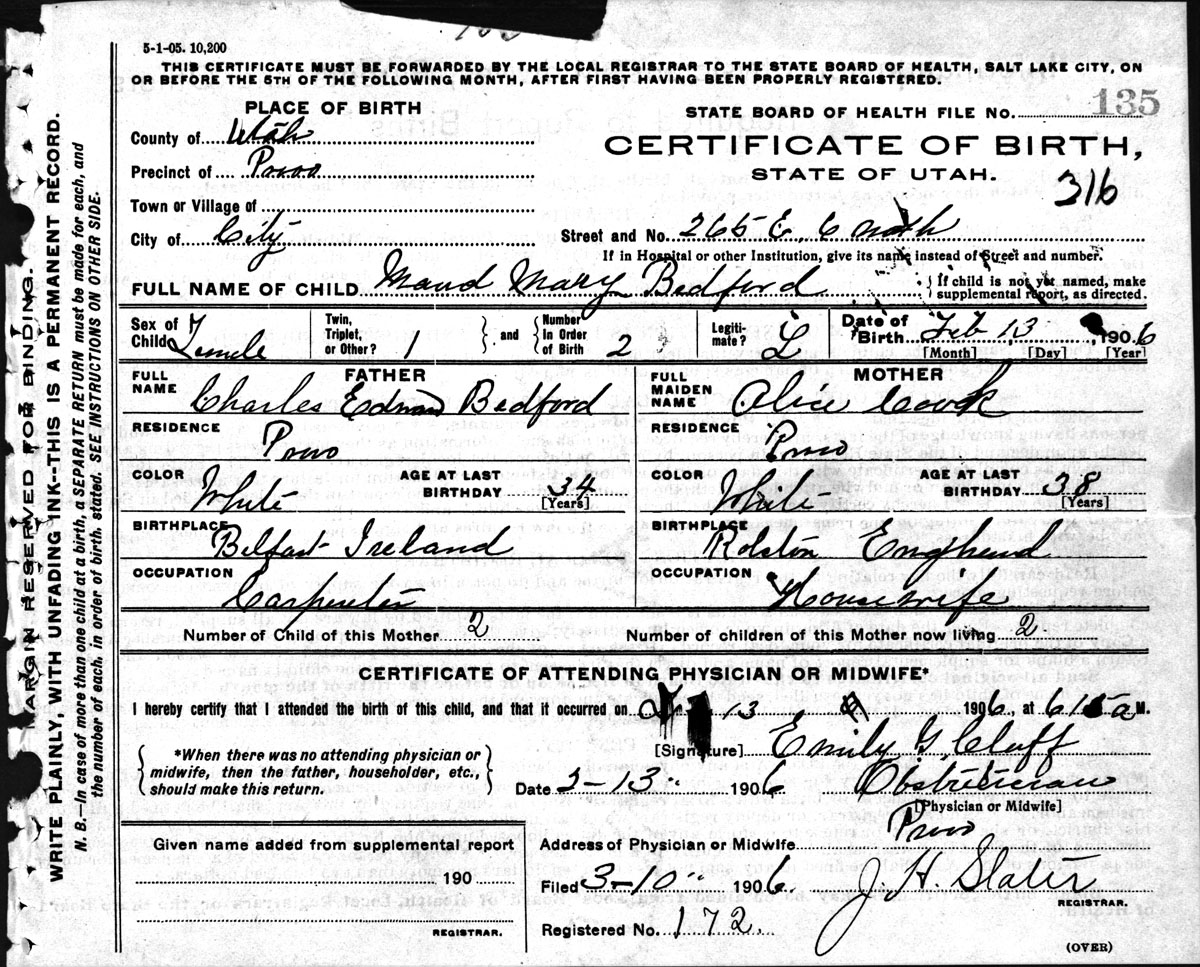 5-1-05. 10,200
THIS CERTIFICATE MUST BE FORWARDED BY THE LOCAL REGISTRAR TO THE STATE BOARD OF HEALTH, SALT LAKE CITY, ON
OR BEFORE THE 5TH OF THE FOLLOWING MONTH, AFTER FIRST HAVING BEEN PROPERLY REGISTERED.
MARGIN RESERVED FOR BINDING.
WRITE PLAINLY, WITH UNFADING INK--THIS IS A PERMANENT RECORD.
N. B.—In case of more than one child at a birth, a SEPARATE RETURN must be made for each, and
the number of each, in order of birth, stated. SEE INSTRUCTIONS ON OTHER SIDE.
PLACE OF BIRTH
County of Utah
Precinct of Provo
Town or Village of
City of City
STATE BOARD OF HEALTH FILE No. 135
CERTIFICATE OF BIRTH,
STATE OF UTAH.
316
Street and No. 265 E 6 north
If in Hospital or other Institution, give its name instead of Street and number.
FULL NAME OF CHILD Maud Mary Bedford
{ If child is not yet named, make
supplemental report, as directed.
Sex of Child Female
Twin, Triplet, or Other? 1
and
Number in Order of Birth 2
Legitimate? L
Date of Birth Feb 13, 1906
[Month] [Day] [Year]
FATHER
FULL NAME Charles Edward Bedford
RESIDENCE Provo
COLOR White
AGE AT LAST BIRTHDAY 34
[Years]
BIRTHPLACE Belfast Ireland
OCCUPATION Carpenter
MOTHER
FULL MAIDEN NAME Alice Cook
RESIDENCE Provo
COLOR White
AGE AT LAST BIRTHDAY 38
[Years]
BIRTHPLACE Rolston England
OCCUPATION Housewife
Number of Child of this Mother 2
Number of children of this Mother now living 2
CERTIFICATE OF ATTENDING PHYSICIAN OR MIDWIFE*
I hereby certify that I attended the birth of this child, and that it occurred on 13 1906, at 615 a M.
*When there was no attending physician or
midwife, then the father, householder, etc.,
should make this return.
[Signature] Emily G. Cluff
Date 2-13 1906 Obstetrician
[Physician or Midwife]
Address of Physician or Midwife Provo
Given name added from supplemental report
190
REGISTRAR.
Filed 3-10 1906. J. H. Slater
REGISTRAR.
Registered No. 172.
(OVER)